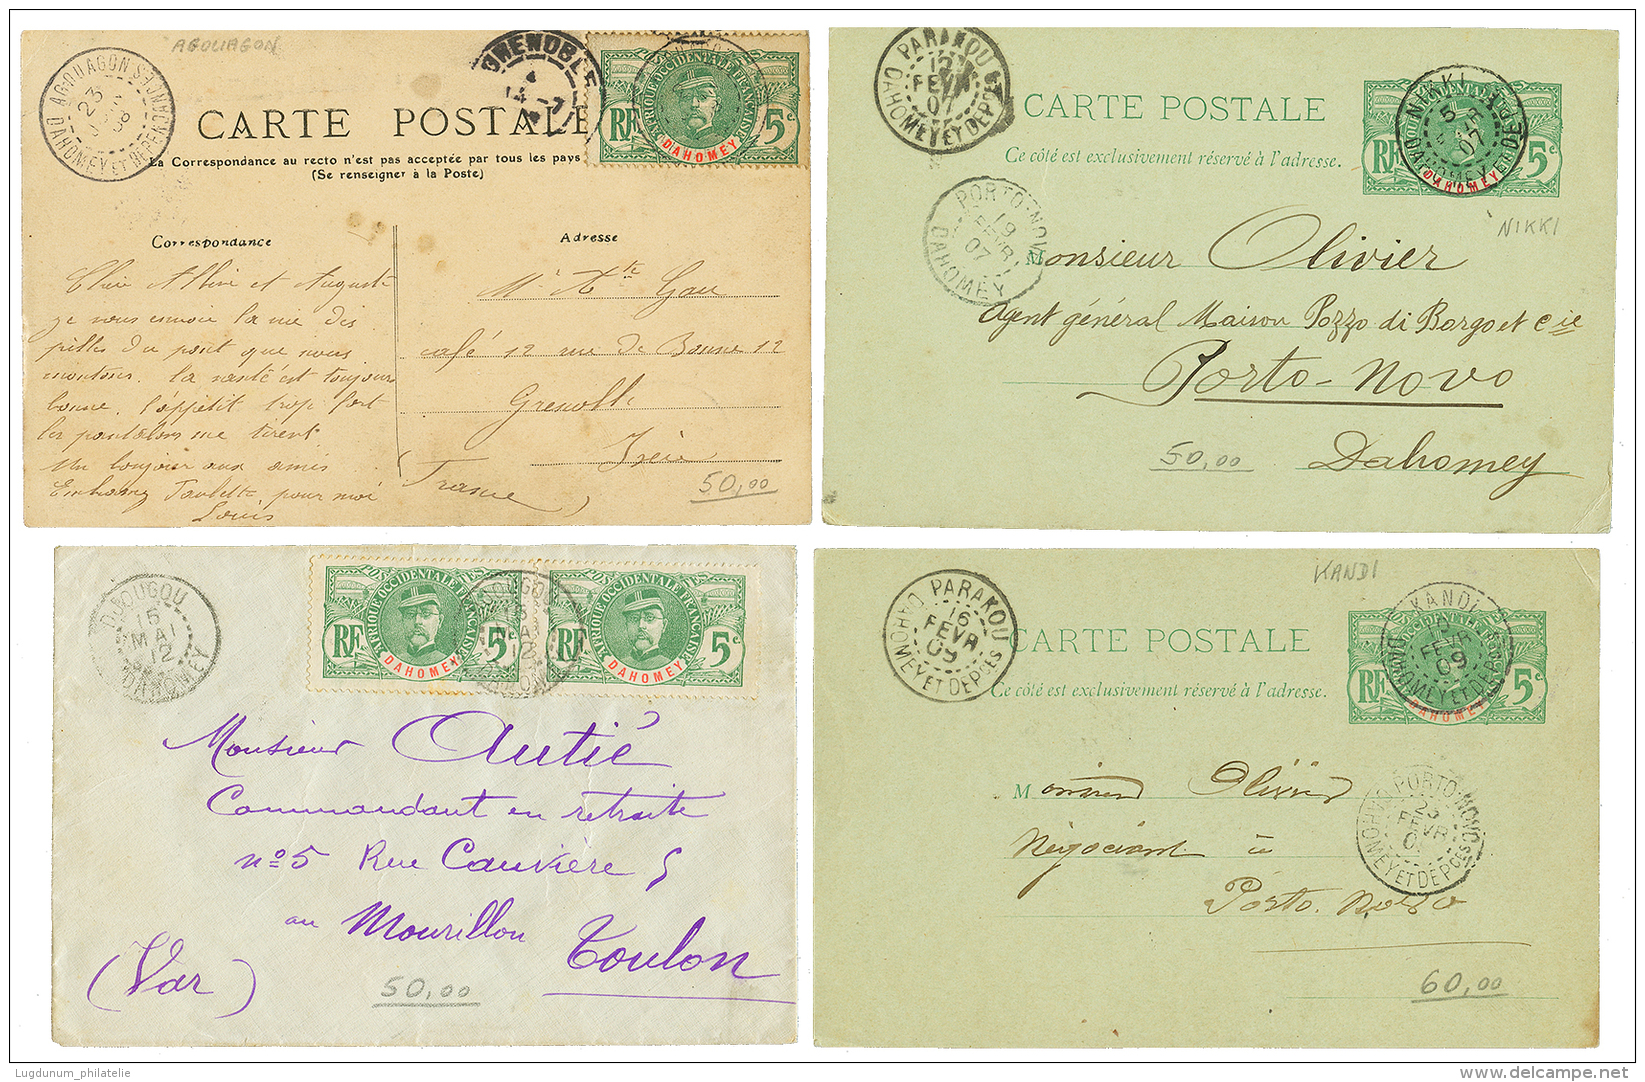 AGOUAGON
AGOUAGON
23
08
DAHOMEY ET DEPENDANCES
GRENOBLE
POSTES
AFRIQUE OCCIDENTALE FRANÇAISE
RF
5c
DAHOMEY
CARTE POSTALE
La Correspondance au recto n'est pas acceptée par tous les pays
(Se renseigner à la Poste)
Correspondance
Adresse
Chère Albine et Auguste
je vous envoie la vie des
pilles du pont que nous
montons. la santé est toujours
bonne, l'appétit trop fort
les pantalons me tirent
Un bonjour aux amis
pour moi
Louis
café 12 rue de Bonne 12
Grenoble
Isère
(France)
50,00
PARAKOU
12
FEVR
07
DAHOMEY ET DEPCES
CARTE POSTALE
Ce côté est exclusivement réservé à l'adresse.
NIKKI
5
07
DAHOMEY ET DEPCES
RF
5c
DAHOMEY
NIKKI
PORTO-NOVO
19
FEVR
07
DAHOMEY
Monsieur Olivier
Agent général Maison Pozzo di Borgo et Cie
Porto-Novo
50,00
Dahomey
DJOUGOU
15
MAI
12
DAHOMEY
POSTES
AFRIQUE OCCIDENTALE FRANÇAISE
RF
5c
DAHOMEY
DJOUGOU
15
MAI
12
DAHOMEY
POSTES
AFRIQUE OCCIDENTALE FRANÇAISE
RF
5c
DAHOMEY
Monsieur Autié
Commandant en retraite
nº5 Rue Cauvière 5
au Mourillon
Toulon
(Var)
50,00
KANDI
PARAKOU
16
FEVR
09
DAHOMEY ET DEPCES
CARTE POSTALE
Ce côté est exclusivement réservé à l'adresse.
KANDI
FEVR
09
DAHOMEY ET DEPCES
RF
5c
DAHOMEY
PORTO-NOVO
23
FEVR
DAHOMEY ET DEPCES
Monsieur Olivier
Négociant à
Porto-Novo
60,00
Lugdunum_philatelie
delcampe.net